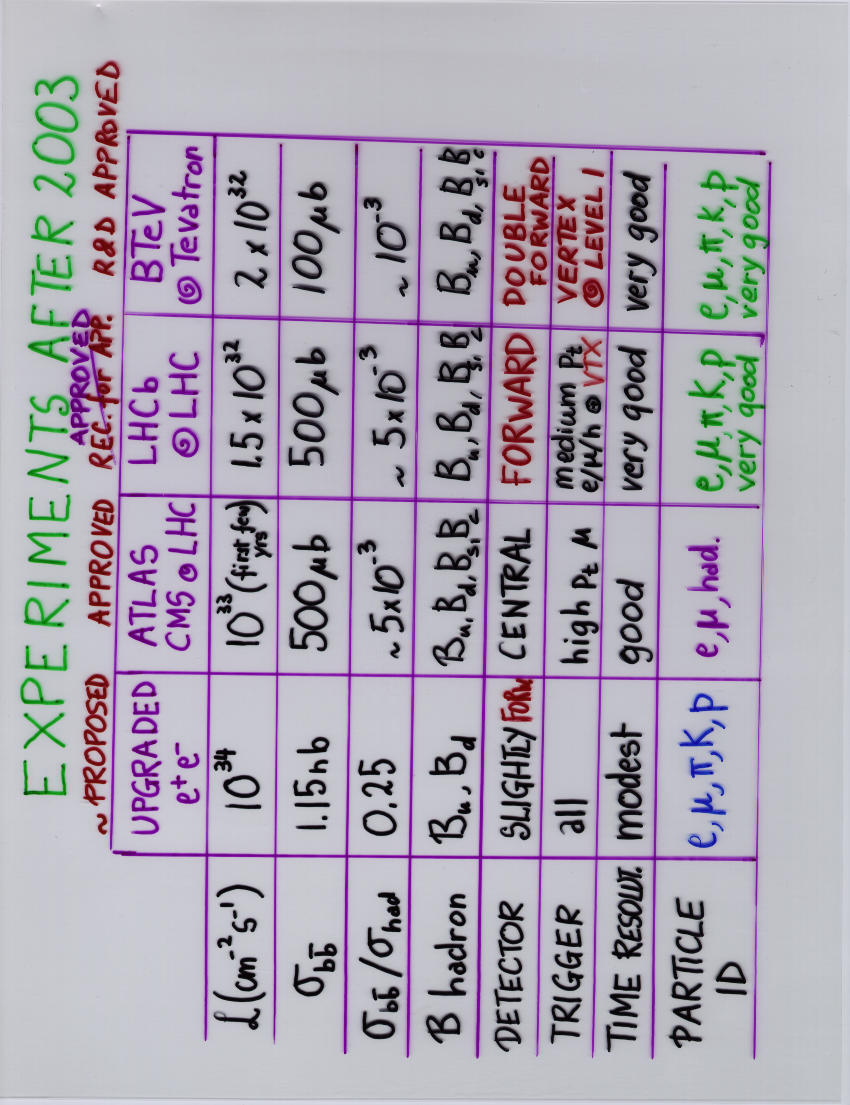 EXPERIMENTS AFTER 2003
~ PROPOSED APPROVED REC. for APP. APPROVED R&D APPROVED
UPGRADED e+e- ATLAS CMS @ LHC LHCb @ LHC BTeV @ Tevatron
ℒ(cm⁻² s⁻¹) 10³⁴ 10³³ (first few yrs) 1.5 x 10³² 2 x 10³²
σ_bb̄ 1.15nb 500μb 500μb 100μb
σ_bb̄/σ_had 0.25 ~ 5x10⁻³ ~ 5x10⁻³ ~ 10⁻³
B hadron B_u, B_d B_u, B_d, B_s, B_c B_u, B_d, B_s, B_c B_u, B_d, B_s, B_c
DETECTOR SLIGHTLY FORW CENTRAL FORWARD DOUBLE FORWARD
TRIGGER all high Pt μ medium Pt e/μ/h @ VTX VERTEX @ LEVEL 1
TIME RESOLUT. modest good very good very good
PARTICLE ID e, μ, π, K, p e, μ, had. e, μ, π, K, p very good e, μ, π, K, p very good